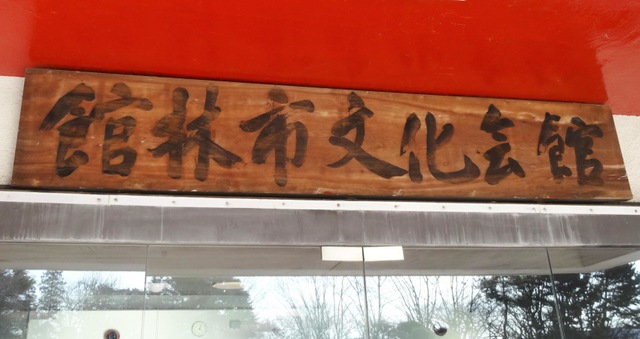 館林市文化会館